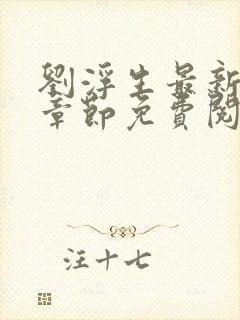 劉浮生最新
章節免費閱
汪十七